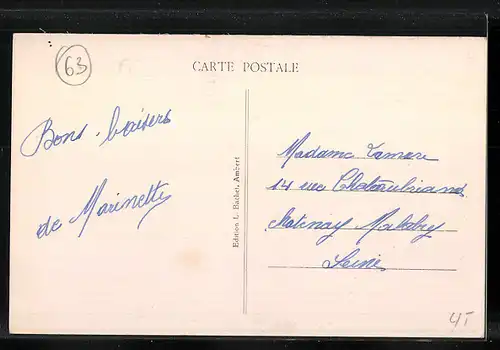 63
CARTE POSTALE
Bons baisers
de Marinette
Edition L. Bachet, Ambert
Madame
14 rue Chateaubriand
Chatenay Malabry
Seine